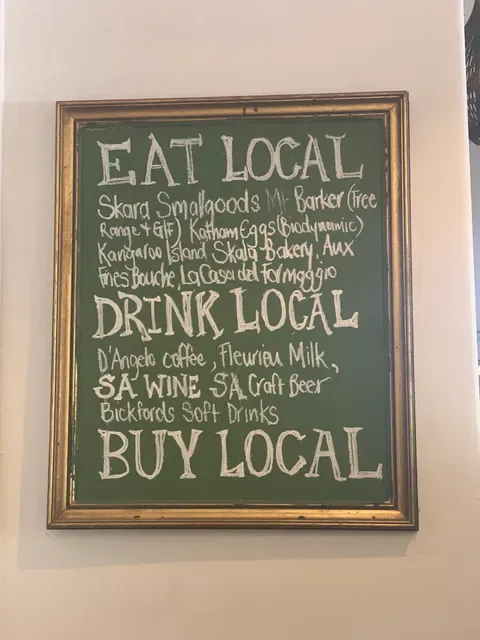 EAT LOCAL
Skara Smallgoods Mt Barker (Free
Range + G|F) Kotham Eggs (Biodynamic)
Kangaroo Island Skala Bakery, Aux
Fines Bouche, La Casa del Formaggio
DRINK LOCAL
D'Angelo coffee, Fleurieu Milk,
SA WINE SA Craft Beer
Bickfords Soft Drinks
BUY LOCAL